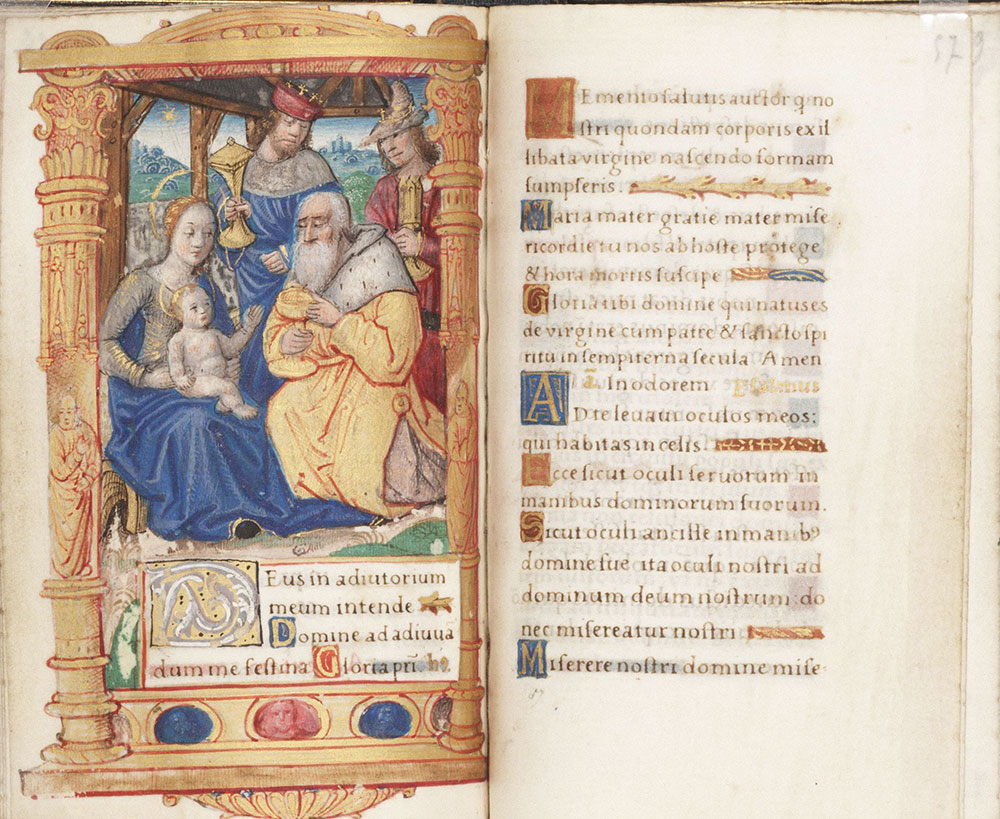 Deus in adiutorium
meum intende
Domine ad adiuua
dum me festina Gloria pri. hȳ.
57
Memento salutis auctor q no
stri quondam corporis ex il
libata virgine nascendo formam
sumpseris.
Maria mater gratie mater mise
ricordie tu nos ab hoste protege
& hora mortis suscipe
Gloria tibi domine qui natus es
de virgine cum patre & sancto spi
ritu in sempiterna secula Amen
ā. In odorem Psalmus
AD te leuaui oculos meos:
qui habitas in celis.
Ecce sicut oculi seruorum in
manibus dominorum suorum.
Sicut oculi ancille in manib9
domine sue ita oculi nostri ad
dominum deum nostrum: do
nec misereatur nostri
Miserere nostri domine mise-